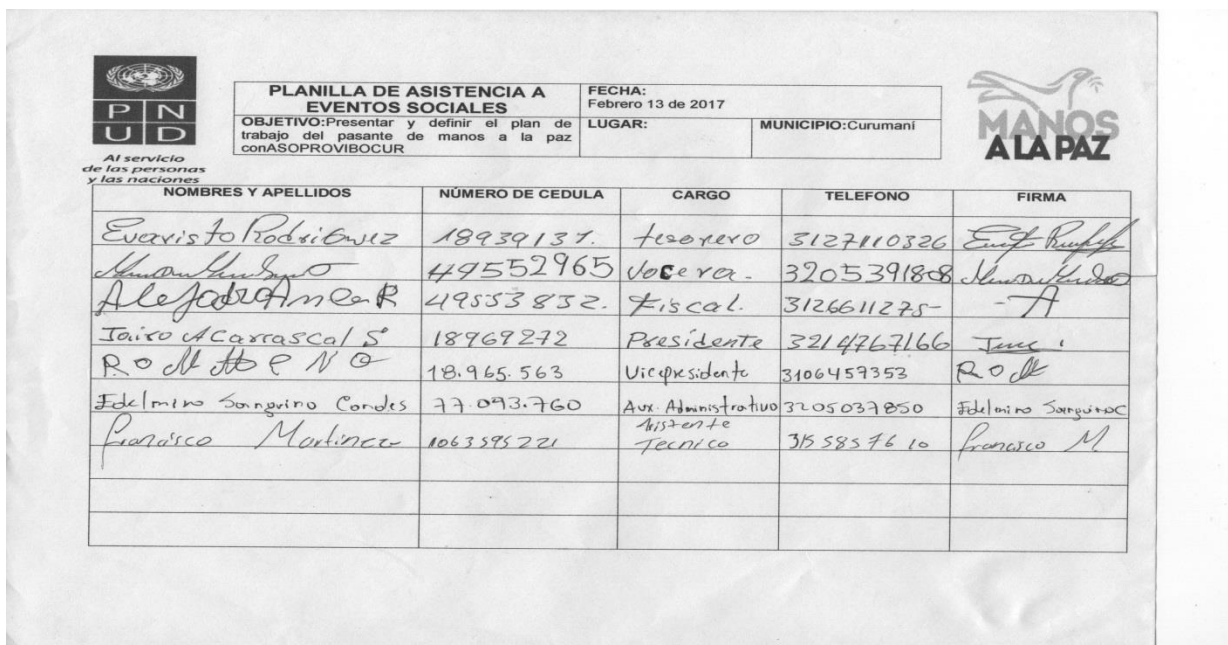 P N
U D
Al servicio
de las personas
y las naciones
PLANILLA DE ASISTENCIA A
EVENTOS SOCIALES
OBJETIVO:Presentar y definir el plan de
trabajo del pasante de manos a la paz
conASOPROVIBOCUR
FECHA:
Febrero 13 de 2017
LUGAR:
MUNICIPIO:Curumaní
MANOS
A LA PAZ
NOMBRES Y APELLIDOS NÚMERO DE CEDULA CARGO TELEFONO FIRMA
Evaristo Rodriguez 18939137. tesorero 3127110326
49552965 Vocera. 3205391808
49553832. Fiscal. 3126611275- A
Jairo A Carrascal S 18969272 Presidente 3214767166
18.965.563 Vicepresidente 3106459353
Edelmiro Sanguino Condes 77.093.760 Aux. Administrativo 3205037850 Edelmiro Sanguino C
Francisco Martinez 1063595221 Asistente Tecnico 3155857610 Francisco M.